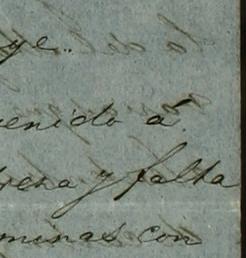 ge..
enido á
rena y falta
minas con